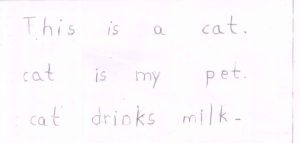 This is a cat.
cat is my pet.
cat drinks milk-